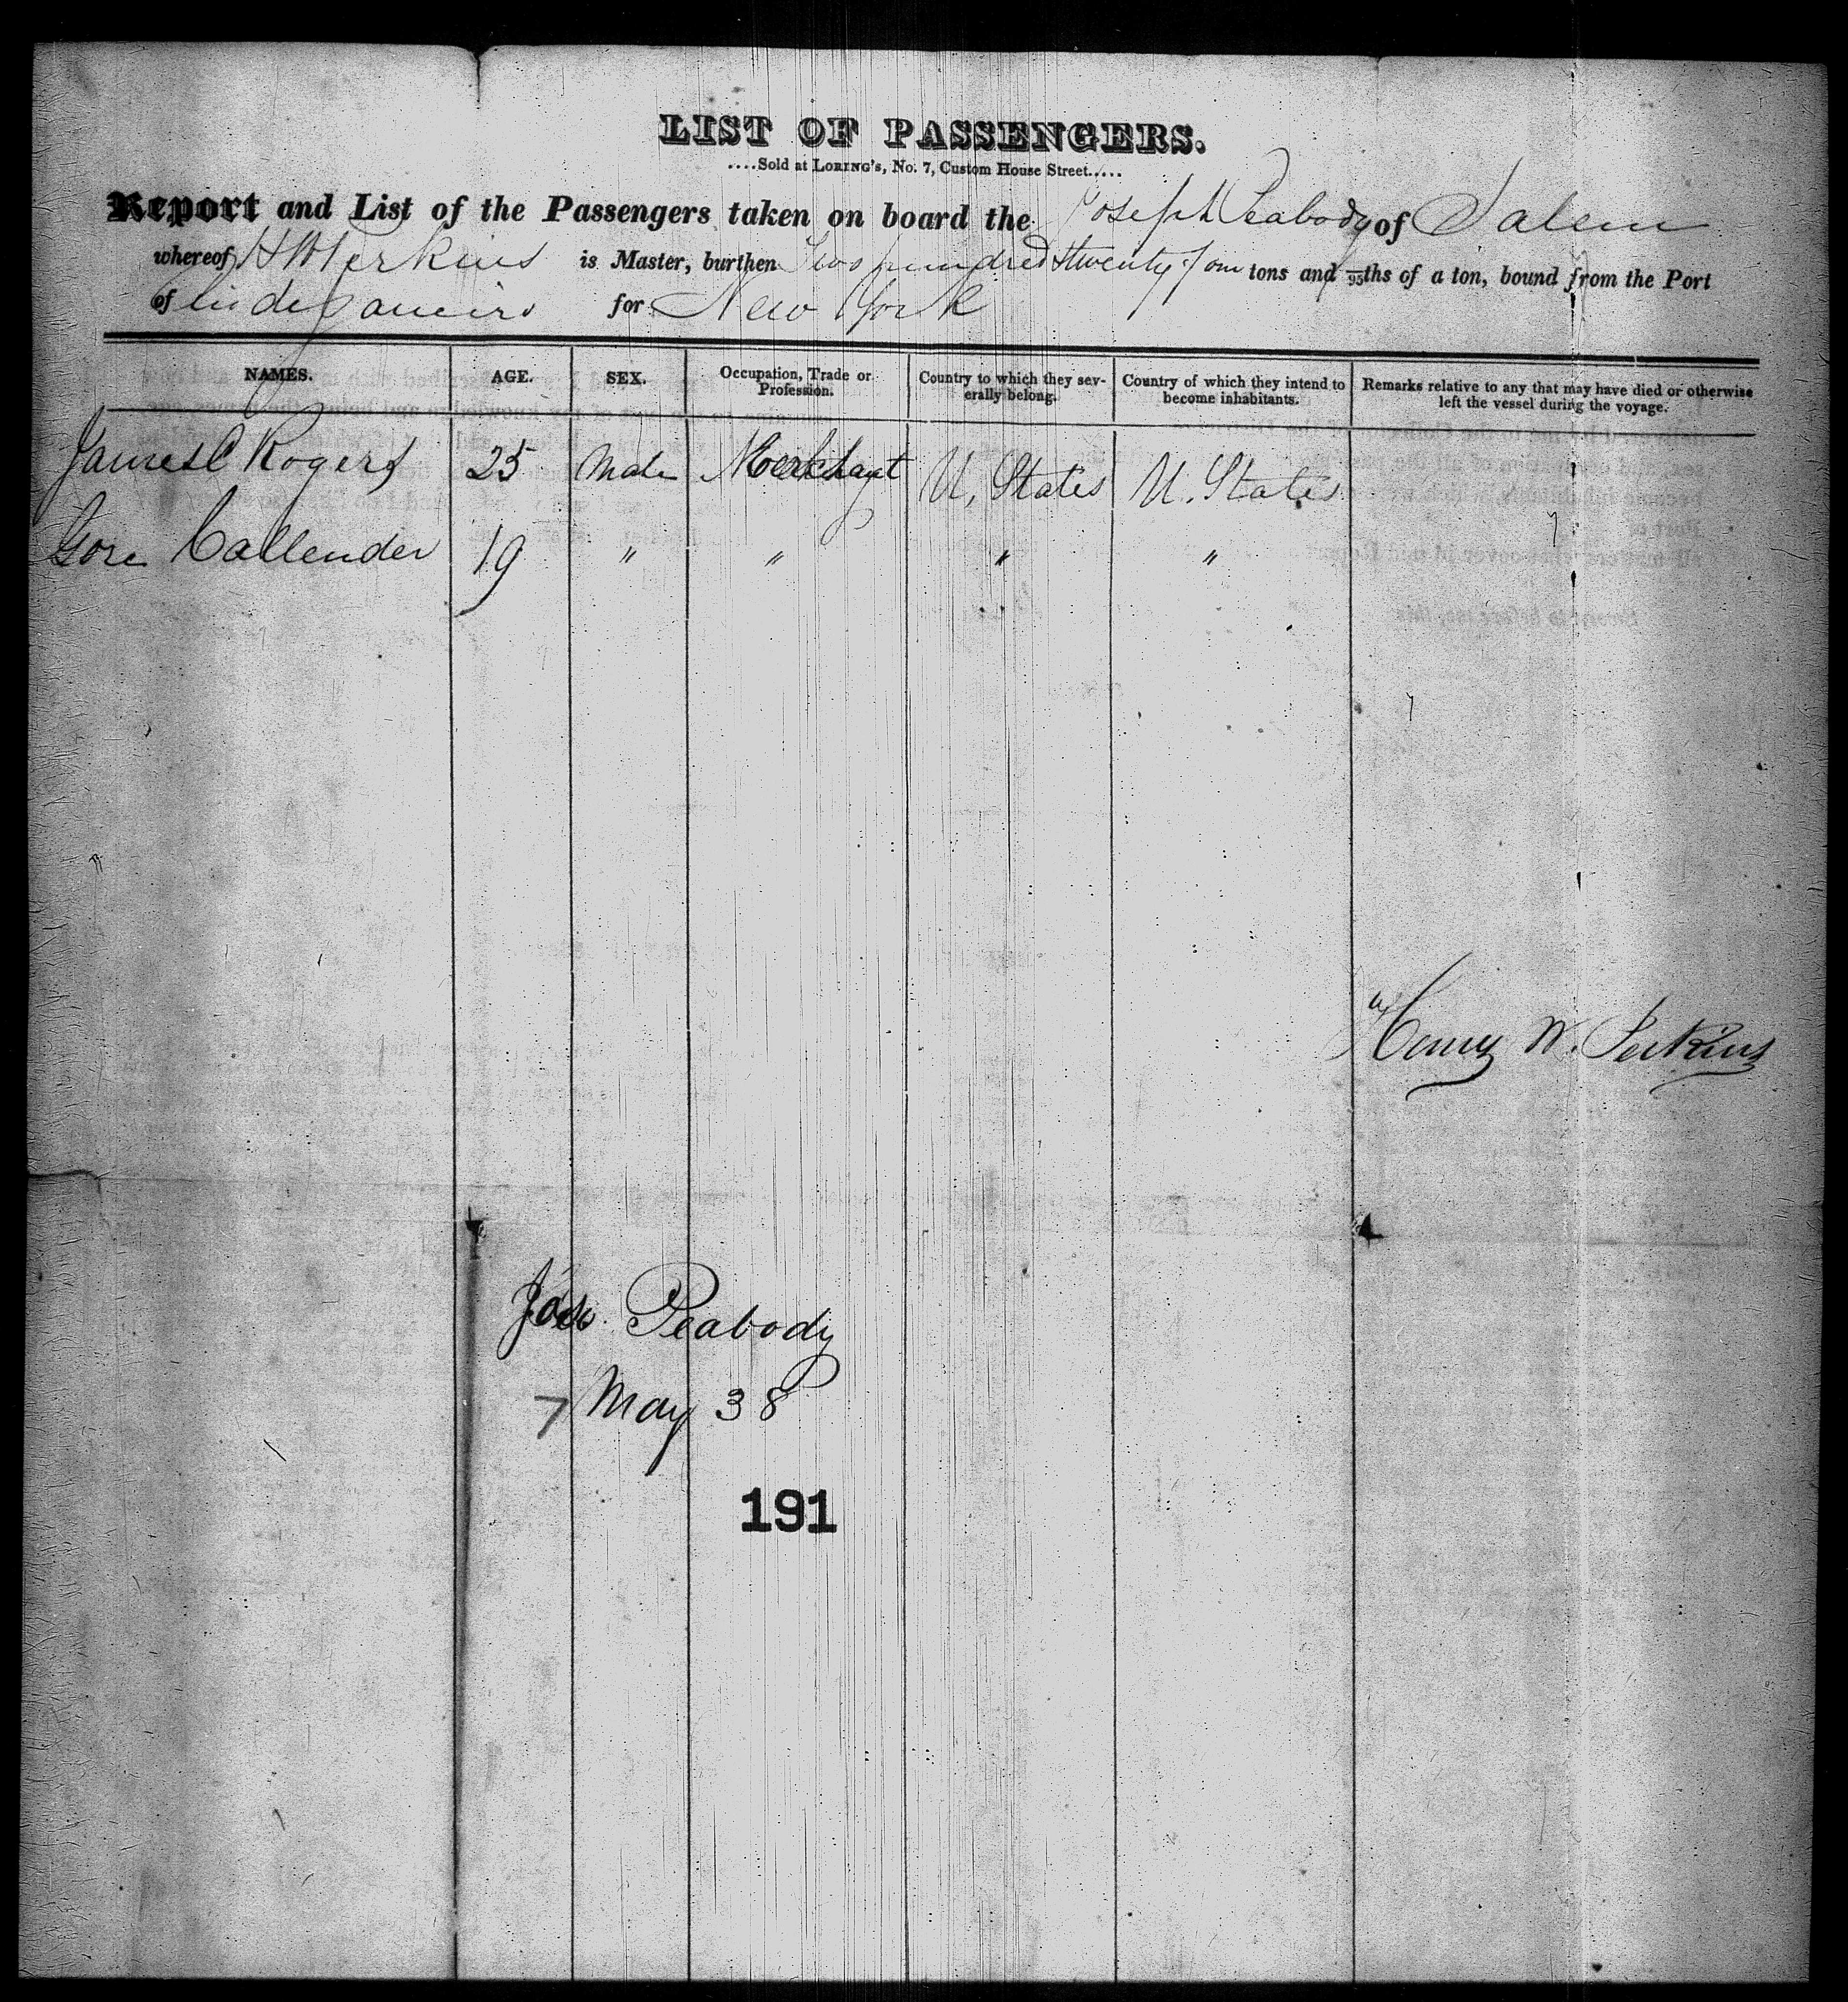 LIST OF PASSENGERS.
....Sold at LORING's, No. 7, Custom House Street.....
Report and List of the Passengers taken on board the Joseph Peabody of Salem
whereof H W Perkins is Master, burthen Two hundred & twenty four tons and 95ths of a ton, bound from the Port
of Rio de Janeiro for New York
NAMES. AGE. SEX. Occupation, Trade or Profession. Country to which they severally belong. Country of which they intend to become inhabitants. Remarks relative to any that may have died or otherwise left the vessel during the voyage.
James C Rogers 25 Male Merchant U. States U. States
Gore Callender 19 " " " "
Henry W. Perkins
Jos. Peabody
7 May 38
191